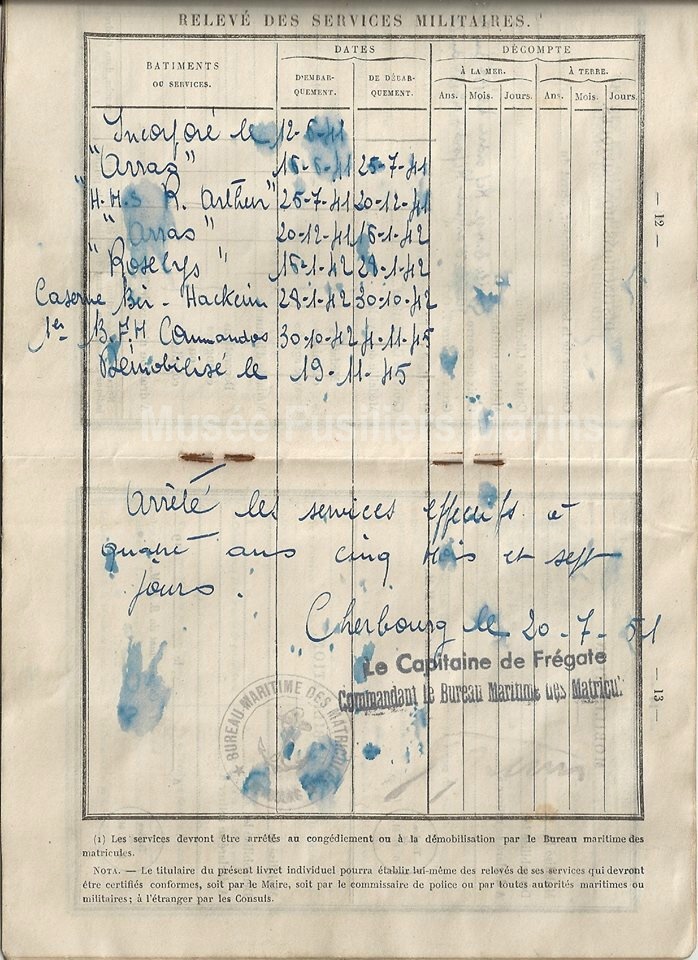 RELEVÉ DES SERVICES MILITAIRES.
BATIMENTS OU SERVICES. DATES DÉCOMPTE
D'EMBARQUEMENT. DE DÉBARQUEMENT. À LA MER. À TERRE.
Ans. Mois. Jours. Ans. Mois. Jours.
Incorporé le 12-6-41
"Arras" 16-6-41 25-7-41
"H.M.S R. Arthur" 25-7-41 20-12-41
"Arras" 20-12-41 16-1-42
"Roselys" 16-1-42 28-1-42
Caserne Bir-Hackeim 28-1-42 30-10-42
1er B.F.M Commandos 30-10-42 4-11-45
Démobilisé le 19-11-45
— 12 —
Musée Fusiliers Marins
Arrêté les services effectifs à
quatre ans cinq mois et sept
jours.
Cherbourg le 20-7-51
Le Capitaine de Frégate
Commandant le Bureau Maritime des Matricul.
BUREAU MARITIME DES MATRICULES
— 13 —
(1) Les services devront être arrêtés au congédiement ou à la démobilisation par le Bureau maritime des
matricules.
NOTA. — Le titulaire du présent livret individuel pourra établir lui-même des relevés de ses services qui devront
être certifiés conformes, soit par le Maire, soit par le commissaire de police ou par toutes autorités maritimes ou
militaires; à l'étranger par les Consuls.